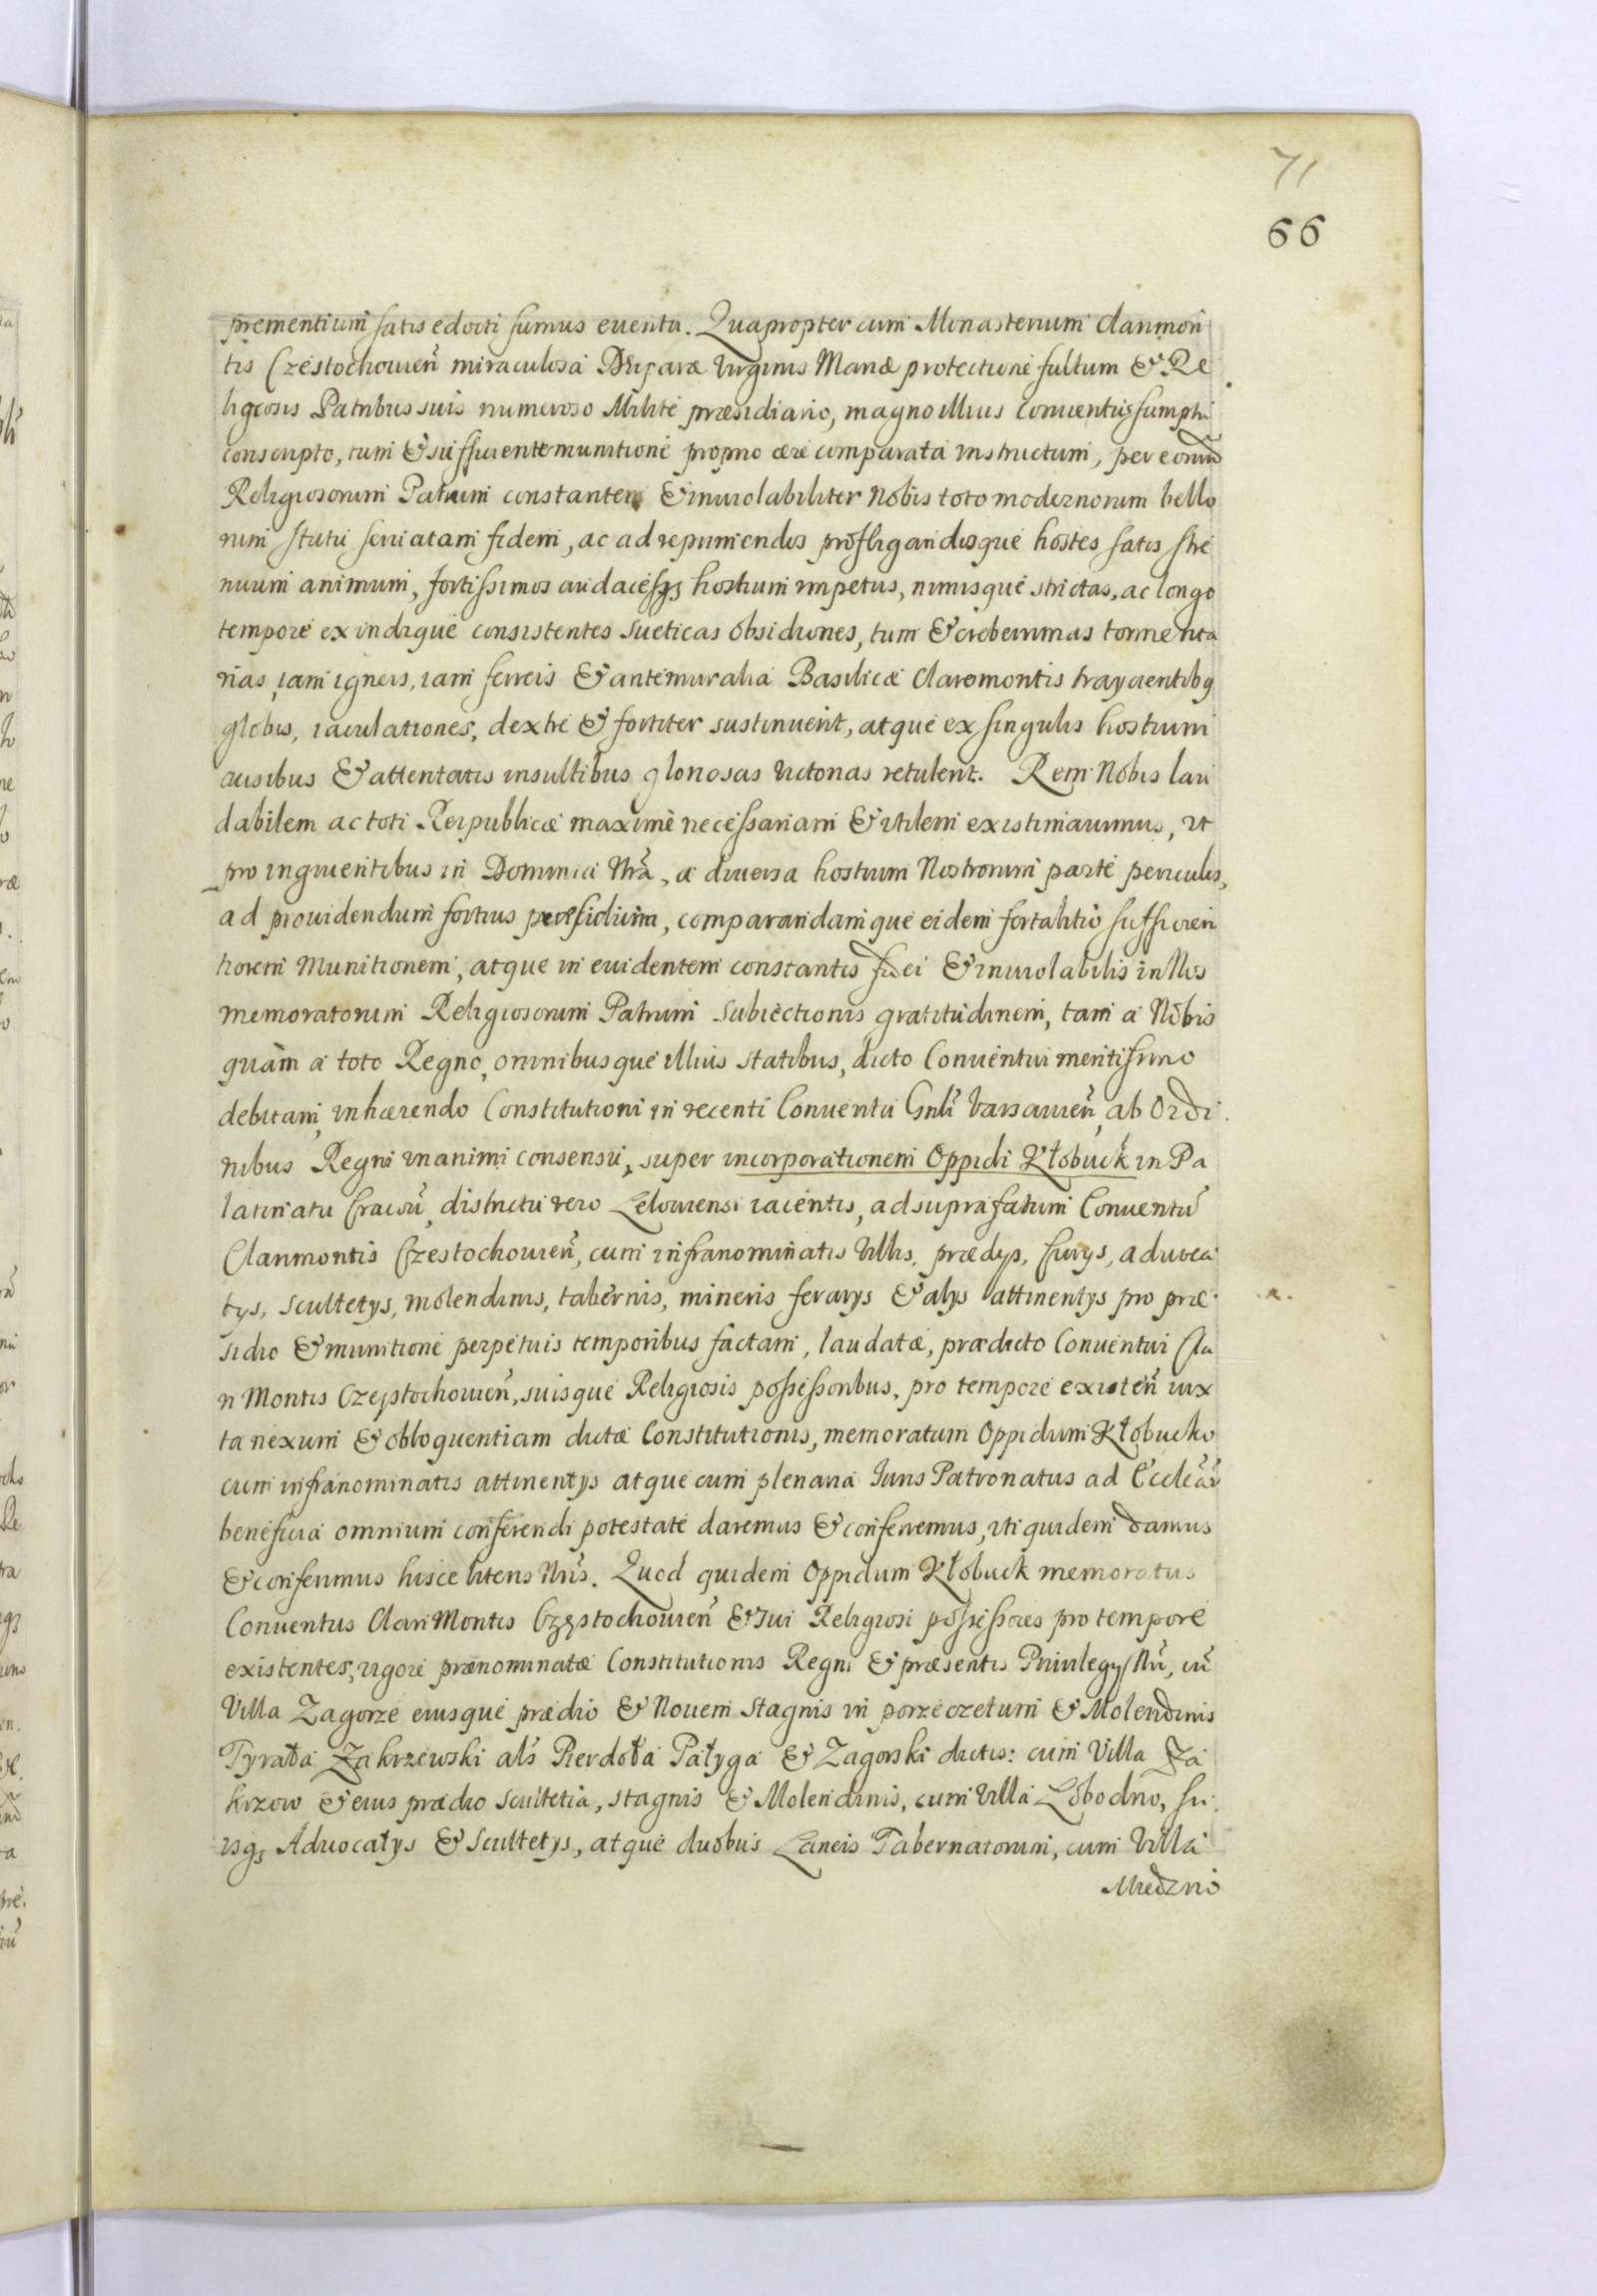 71
66
prementium satis edocti sumus eventu. Quapropter cum Monasterium Clarimon
tis Częstochouien̄ miraculosa Deiparæ Virginis Mariæ protectione fultum & Re
ligiosis Patribus suis numeroso Milite præsidiario, magno illius Conuentus sumptu
conscripto, tum & sufficiente munitione proprio ære comparata instructum, per eorund
Religiosorum Patrum constantem & inuiolabiliter Nobis toto modernorum bello
rum statu seruatam fidem, ac ad reprimendos profligandosque hostes satis stre
nuum animum, fortissimos audacesqs hostium impetus, nimisque strictas, ac longo
tempore exindique consistentes Sueticas obsidiones, tum & creberrimas tormenta
rias, iam igneis, iam ferreis & antemuralia Basilicæ Claromontis trayicientibq
globis, iaculationes, dextre & fortiter sustinuerit, atque ex singulis hostium
ausibus & attentatis insultibus gloriosas victorias retulerit. Rem Nobis lau
dabilem ac toti Reipublicæ maximè necessariam & vtilem existimauimus, vt
pro ingruentibus in Dominia Nr̄a, a diuersa hostium Nostrorum parte periculis,
ad prouidendum fortius præsidium, comparandamque eidem fortalitio sufficien
tiorem Munitionem, atque in euidentem constantis fidei & inuiolabilis in Nos
memoratorum Religiosorum Patrum subiectionis gratitudinem, tam a Nobis
quàm a toto Regno, omnibusque illius statibus, dicto Conuentui meritissimo
debitam, inhærendo Constitutioni in recenti Conuentu Gnl̄i Varsauien̄, ab Ordi
nibus Regni vnanimi consensu, super incorporationem Oppidi Kłobuck in Pa
latinatu Cracoū, districtu vero Lelouiensi iacentis, ad suprafatum Conuentū
Clarimontis Częstochouien̄, cum infranominatis Villis, prædys, siluys, aduoca
tys, scultetys, molendinis, tabernis, mineris ferarys & alys attinentys pro præ
sidio & munitione perpetuis temporibus factam, laudatæ, prædicto Conuentui Cla
ri Montis Częstochouien̄, suisque Religiosis possessoribus, pro tempore existen̄ iux
ta nexum & obloquentiam dictæ Constitutionis, memoratum Oppidum Kłobucko
cum infranominatis attinentys atque cum plenaria Juris Patronatus ad Eccleār
beneficia omnium conferendi potestate daremus & conferremus, vti quidem damus
& conferimus hisce literis Nr̄is. Quod quidem Oppidum Kłobuck memoratus
Conuentus Clari Montis Częstochouien̄ & sui Religiosi possessores pro tempore
existentes, vigore prænominatæ Constitutionis Regni & præsentis Priuilegy Nr̄i, cū
Villa Zagorze eiusque prædio & Nouem Stagnis in porzeczetum & Molendinis
Tyrała Zakrzewski al̄s Pierdoła Pałyga & Zagorski dictis: cum Villa Za
krzow & eius prædio scultetia, stagnis & Molendinis, cum Villa Łobodno, su
isqs Aduocatys & Scultetys, atque duobus Laneis Tabernatorum, cum Villa
Miedzno